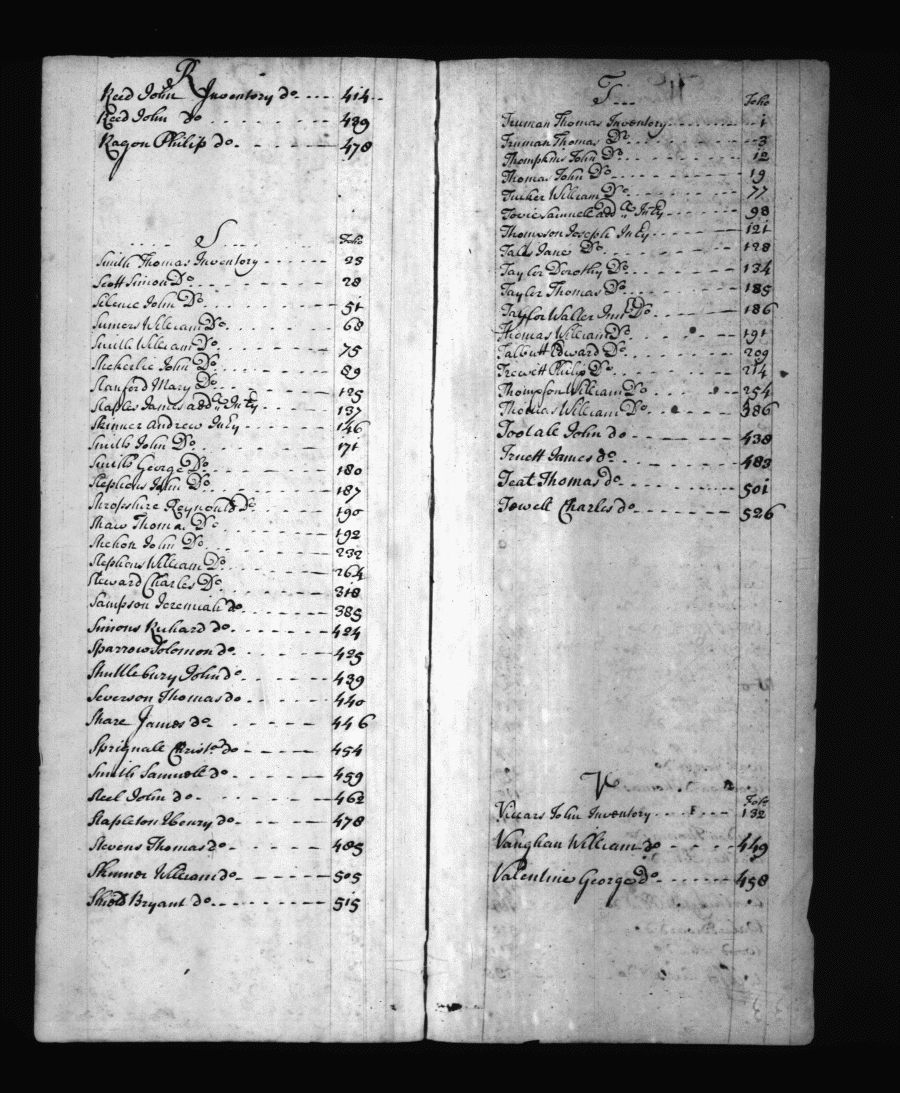 R
Reed John Inventory do 414
Reed John do 439
Ragon Philip do 478
S
Folio
Smith Thomas Inventory 23
Scott Simon Do 28
Silence John Do 51
Sumers William Do 68
Smith William Do 75
John Do 89
Stanford Mary Do 125
Staples James add Inty 137
Skinner Andrew InEy 146
Smith John Do 171
Smith George Do 180
Stephens John Do 187
Shropshire Reynould Do 190
Shaw Thomas Do 192
John Do 232
Stephens William Do 264
Steward Charles Do 318
Sampson Jeremiah do 385
Simons Richard do 424
Sparrow Solomon do 425
Shuttlebury John do 439
Severson Thomas do 440
Share James do 446
Sprignale Christo do 454
Smith Samuell do 459
Steel John do 462
Stapleton Henry do 478
Stevens Thomas do 485
Skinner William do 505
Shield Bryant do 515
T
Folio
Truman Thomas Inventory 1
Truman Thomas Do 3
Thompkins John Do 12
Thomas John Do 19
Tucker William Do 77
Tovie Samuell add InEy 98
Thompson Joseph InEy 121
Tall Jane Do 128
Tayler Dorothy Do 134
Tayler Thomas Do 185
Taylor Walter Do 186
Thomas William Do 191
Talbutt Edward Do 209
Trewett Philip Do 214
Thompson William Do 254
Thomas William Do 386
Tootale John do 438
Truett James do 483
Teat Thomas do 501
Towell Charles do 526
V
Folio
Viccars John Inventory 132
Vaughan William do 449
Valentine George Do 458